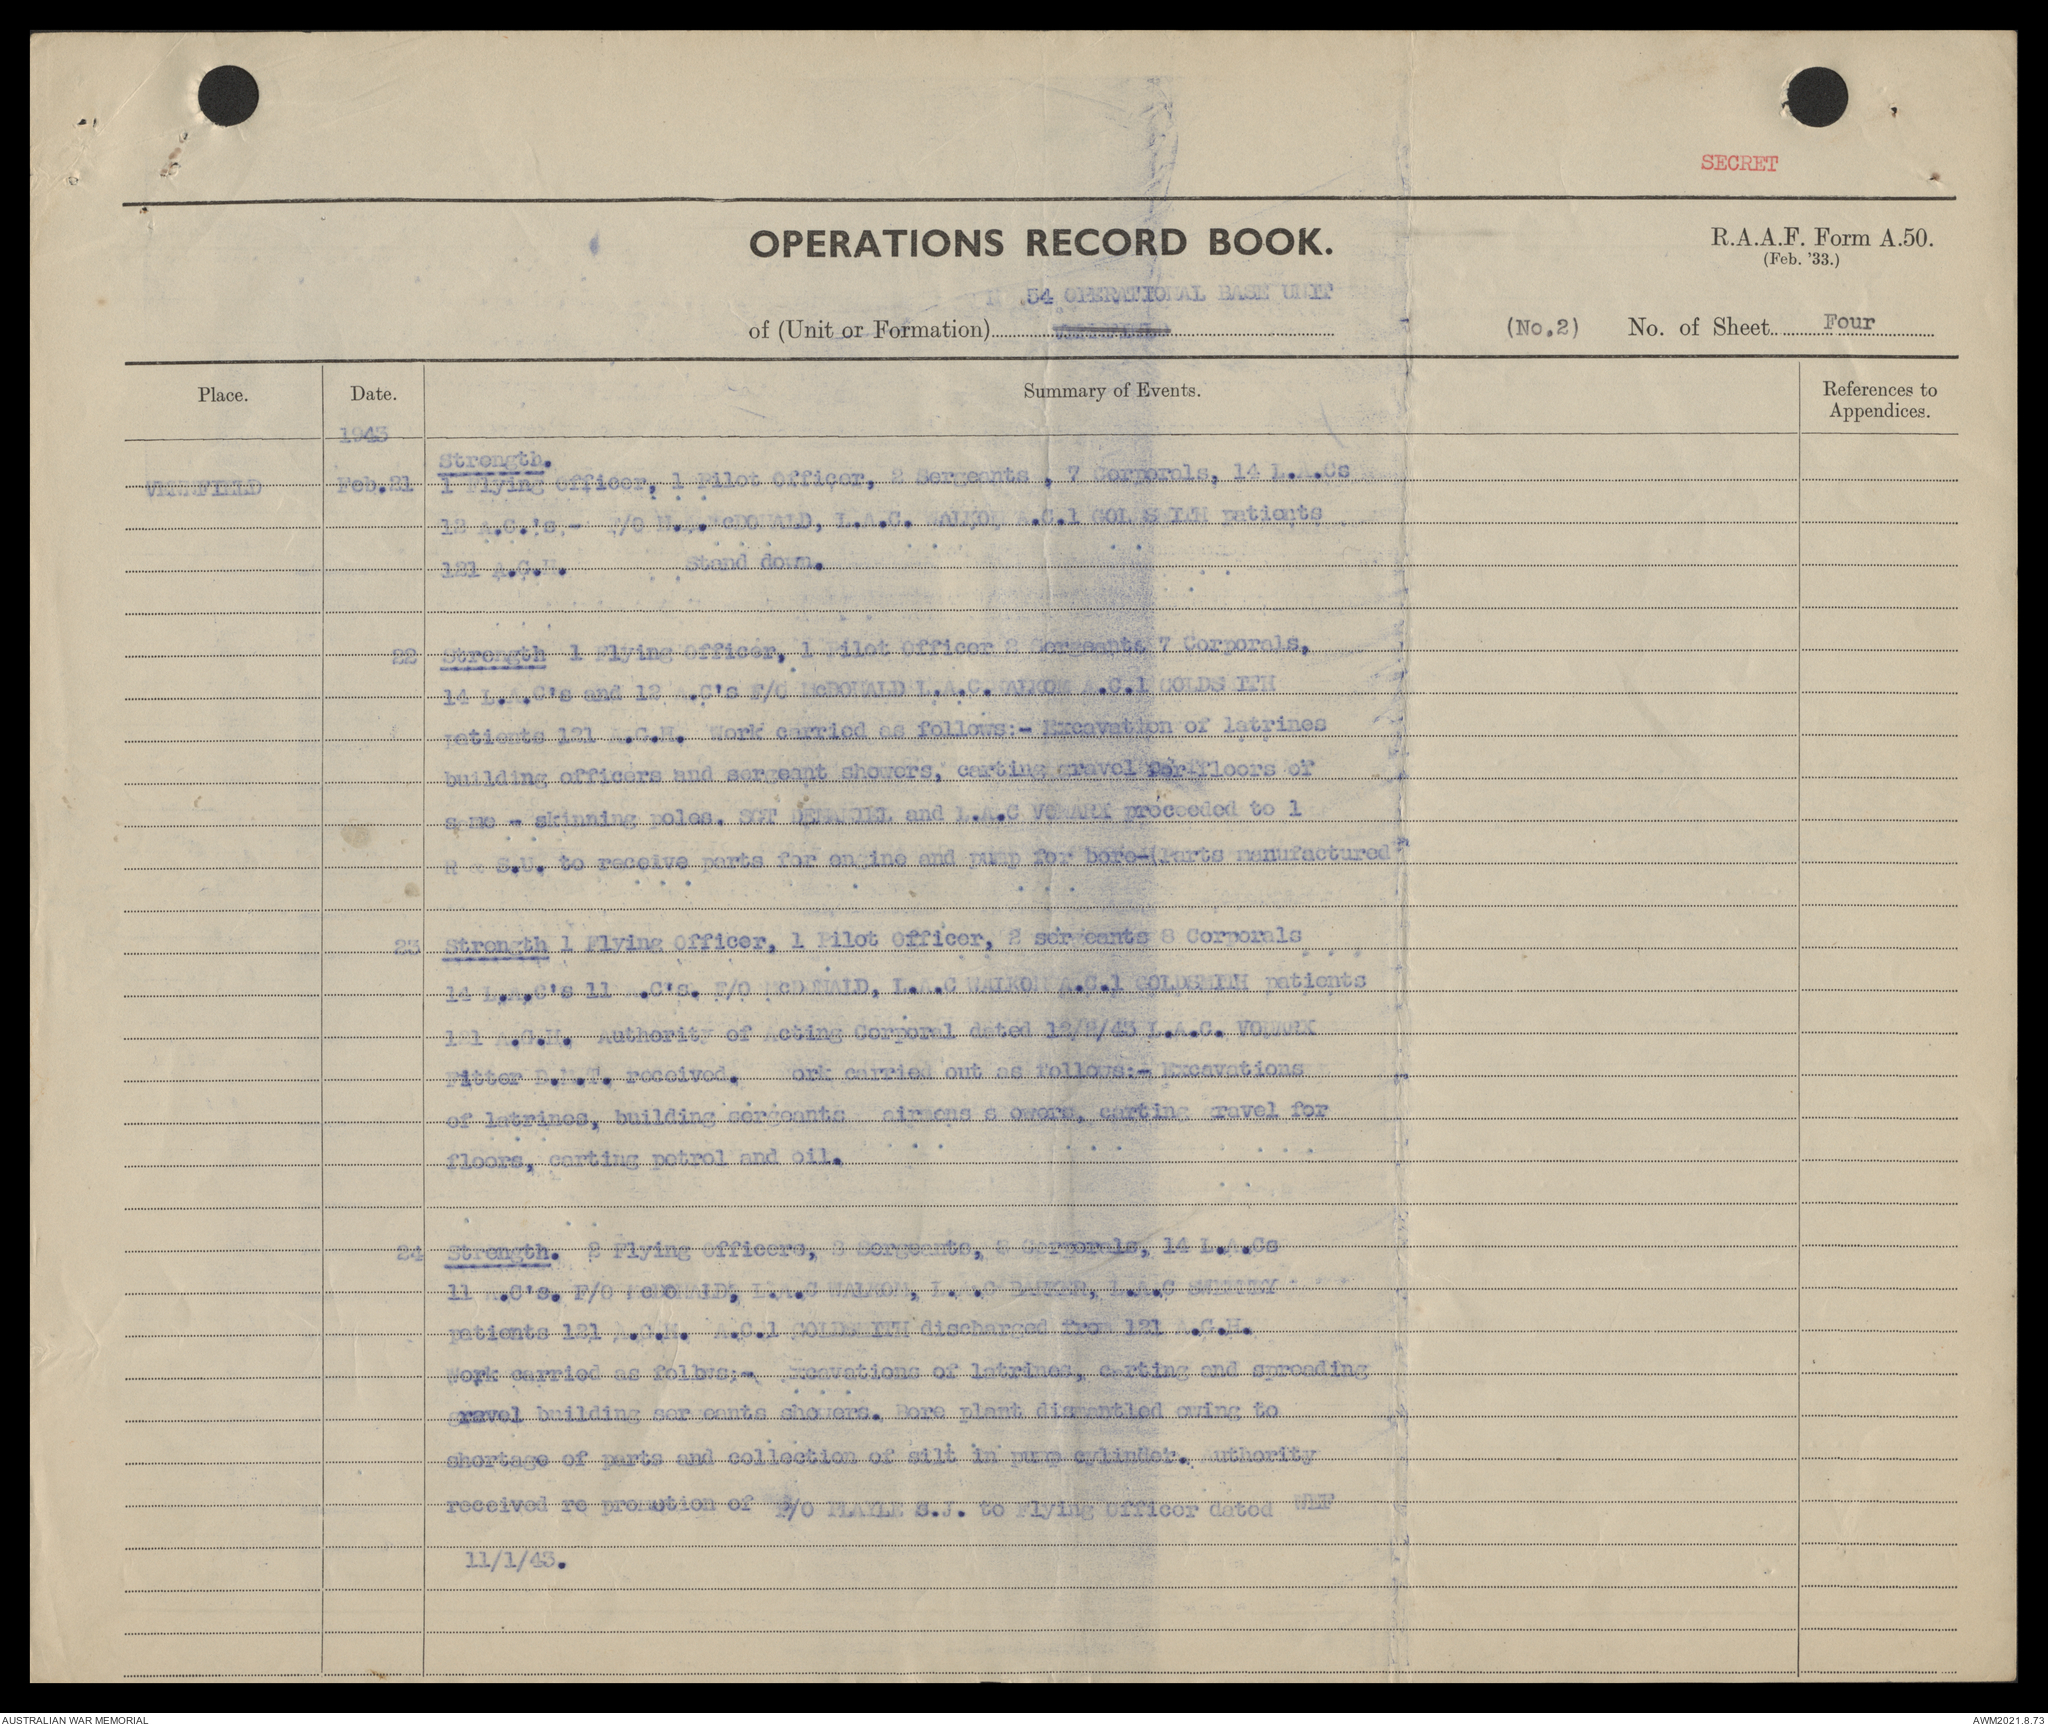 SECRET
OPERATIONS RECORD BOOK.
R.A.A.F. Form A.50.
(Feb. '33.)
54 OPERATIONAL BASE UNIT
of (Unit or Formation)
(No.2) No. of Sheet Four
Place. Date. Summary of Events. References to Appendices.
1943
Strength.
Feb.21 1 Flying Officer, 1 Pilot Officer, 2 Sergeants , 7 Corporals, 14 L.A.Cs
12 A.C.'s - F/O McDONALD, L.A.C. WALKOM A.C.1 GOLDSMITH patients
121 A.G.H. Stand down.
22 Strength 1 Flying Officer, 1 Pilot Officer 2 Sergeants 7 Corporals,
14 L.A.C's and 12 A.C's F/O McDONALD L.A.C. WALKOM A.C.1 GOLDSMITH
patients 121 A.G.H. Work carried as follows:- Excavation of latrines
building officers and sergeant showers, carting gravel for floors of
same - skinning poles. SGT and L.A.C proceeded to 1
R & S.U. to receive parts for engine and pump for bore-(Parts manufactured
23 Strength 1 Flying Officer, 1 Pilot Officer, 2 sergeants 8 Corporals
14 L.A.C's 11 A.C's. F/O McDONALD, L.A.C WALKOM A.C.1 GOLDSMITH patients
121 A.G.H. Authority of Acting Corporal dated 12/2/43 L.A.C.
Fitter D.M.T. received. Work carried out as follows:- Excavations
of latrines, building sergeants airmens s owers, carting gravel for
floors, carting petrol and oil.
24 Strength. 2 Flying Officers, 3 Sergeants, 8 Corporals, 14 L.A.Cs
11 A.C's. F/O McDONALD, L.A.C WALKOM, L.A.C L.A.C
patients 121 A.G.H. A.C.1 GOLDSMITH discharged from 121 A.G.H.
Work carried as follows:- Excavations of latrines, carting and spreading
gravel building sergeants showers. Bore plant dismantled owing to
shortage of parts and collection of silt in pump cylinder. Authority
received re promotion of P/O PLAYLE S.J. to Flying Officer dated WEF
11/1/43.
AUSTRALIAN WAR MEMORIAL
AWM2021.8.73